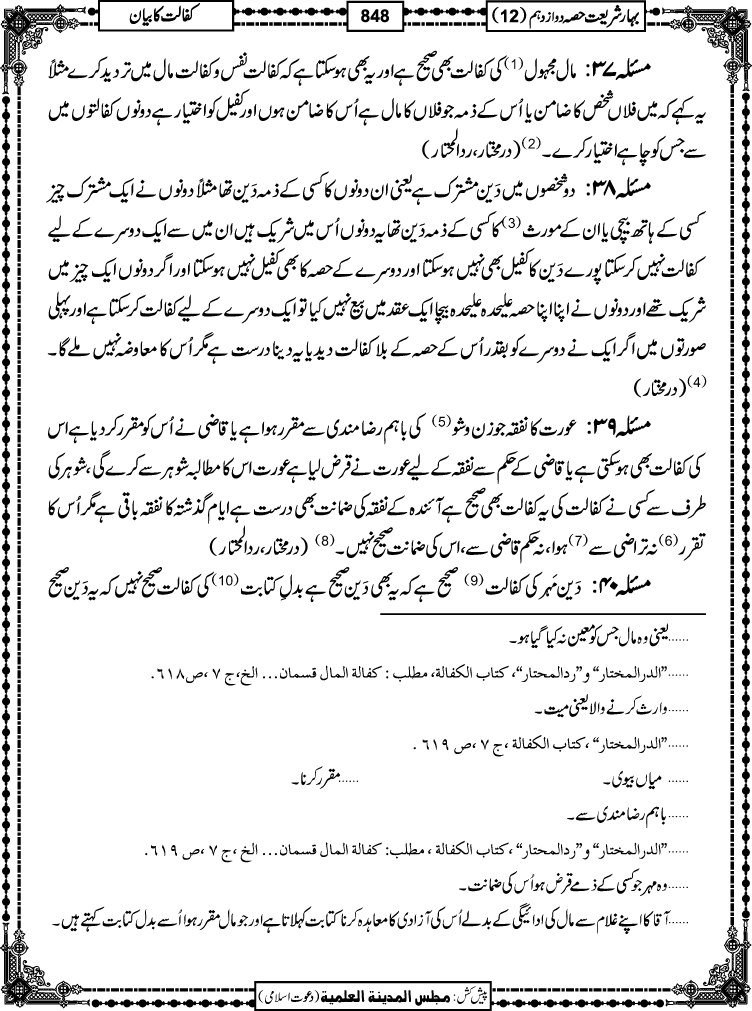 بہارِ شریعت حصہ دوازدہم (12)
848
کفالت کا بیان
مسئلہ ۳۷: مال مجہول (1) کی کفالت بھی صحیح ہے اور یہ بھی ہوسکتا ہے کہ کفالت نفس و کفالت مال میں تردید کرے مثلاً
یہ کہے کہ میں فلاں شخص کا ضامن یا اُس کے ذمہ جو فلاں کا مال ہے اُس کا ضامن ہوں اور کفیل کو اختیار ہے دونوں کفالتوں میں
سے جس کو چاہے اختیار کرے۔ (2) (درمختار، ردالمحتار)
مسئلہ ۳۸: دو شخصوں میں دَین مشترک ہے یعنی ان دونوں کا کسی کے ذمہ دَین تھا مثلاً دونوں نے ایک مشترک چیز
کسی کے ہاتھ بیچی یا ان کے مورث (3) کا کسی کے ذمہ دَین تھا یہ دونوں اُس میں شریک ہیں ان میں سے ایک دوسرے کے لیے
کفالت نہیں کرسکتا پورے دَین کا کفیل بھی نہیں ہوسکتا اور دوسرے کے حصہ کا بھی کفیل نہیں ہوسکتا اور اگر دونوں ایک چیز میں
شریک تھے اور دونوں نے اپنا اپنا حصہ علیحدہ علیحدہ بیچا ایک عقد میں بیع نہیں کیا تو ایک دوسرے کے لیے کفالت کرسکتا ہے اور پہلی
صورتوں میں اگر ایک نے دوسرے کو بقدر اُس کے حصہ کے بلا کفالت دیدیا یہ دینا درست ہے مگر اُس کا معاوضہ نہیں ملے گا۔
(4) (درمختار)
مسئلہ ۳۹: عورت کا نفقہ جو زن و شو (5) کی باہم رضا مندی سے مقرر ہوا ہے یا قاضی نے اُس کو مقرر کردیا ہے اس
کی کفالت بھی ہوسکتی ہے یا قاضی کے حکم سے نفقہ کے لیے عورت نے قرض لیا ہے عورت اس کا مطالبہ شوہر سے کرے گی، شوہر کی
طرف سے کسی نے کفالت کی یہ کفالت بھی صحیح ہے آئندہ کے نفقہ کی ضمانت بھی درست ہے ایام گذشتہ کا نفقہ باقی ہے مگر اُس کا
تقرر (6) نہ تراضی سے (7) ہوا، نہ حکم قاضی سے، اس کی ضمانت صحیح نہیں۔ (8) (درمختار، ردالمحتار)
مسئلہ ۴۰: دَین مَہر کی کفالت (9) صحیح ہے کہ یہ بھی دَین صحیح ہے بدلِ کتابت (10) کی کفالت صحیح نہیں کہ یہ دَین صحیح
......یعنی وہ مال جس کو معین نہ کیا گیا ہو۔
......”الدرالمختار“ و ”ردالمحتار“، کتاب الکفالۃ، مطلب : کفالۃ المال قسمان... الخ،ج ۷ ،ص٦١٨.
......وارث کرنے والا یعنی میت۔
......”الدرالمختار“ ،کتاب الکفالۃ ،ج ۷ ،ص ٦١٩ .
...... میاں بیوی۔ ......مقرر کرنا۔
......باہم رضامندی سے۔
......”الدرالمختار“ و ”ردالمحتار“ ،کتاب الکفالۃ ، مطلب: کفالۃ المال قسمان... الخ ،ج ۷ ،ص ٦١٩.
......وہ مہر جو کسی کے ذمے قرض ہو اُس کی ضمانت۔
......آقا کا اپنے غلام سے مال کی ادائیگی کے بدلے اُس کی آزادی کا معاہدہ کرنا کتابت کہلاتا ہے اور جو مال مقرر ہوا اُسے بدل کتابت کہتے ہیں۔
پیش کش: مجلس المدینۃ العلمیۃ (دعوت اسلامی)